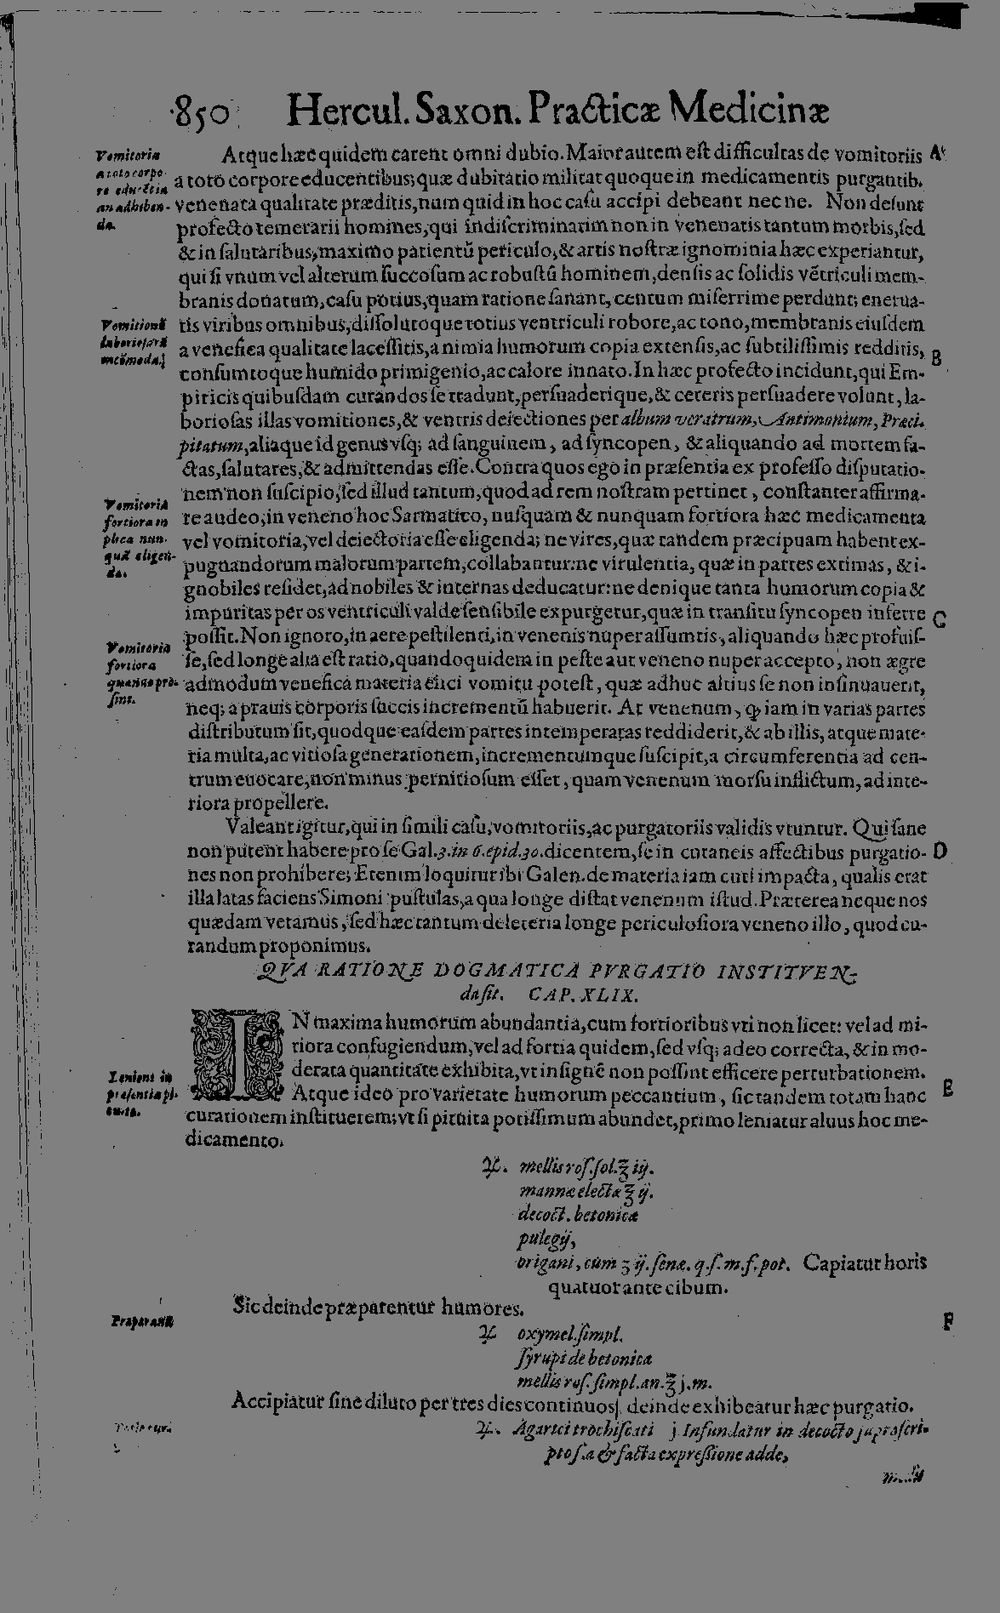 850 Hercul. Saxon. Practicæ Medicinæ
Vomitoria
a toto corpo-
re educētia
an adhiben-
da.
Atque hæc quidem carent omni dubio. Maior autem est difficultas de vomitoriis A
a toto corpore educentibus; quæ dubitatio militat quoque in medicamentis purgantib.
venenata qualitate præditis, num quid in hoc casu accipi debeant nec ne. Non desunt
profecto temerarii homines, qui indiscriminatim non in venenatis tantum morbis, sed
& in salutaribus, maximo patientū periculo, & artis nostræ ignominia hæc experiantur,
qui si vnum vel alterum succosum ac robustū hominem, densis ac solidis vētriculi mem-
branis donatum, casu potius, quam ratione sanant, centum miserrime perdunt; enerua-
Vomitionū
laboriosarū
incōmoda.
tis viribus omnibus, dissolutoque totius ventriculi robore, ac tono, membranis eiusdem
a venefica qualitate lacessitis, a nimia humorum copia extensis, ac subtilissimis redditis, B
consumtoque humido primigenio, ac calore innato. In hæc profecto incidunt, qui Em-
piricis quibusdam curandos se tradunt, persuaderique, & ceteris persuadere volunt, la-
boriosas illas vomitiones, & ventris deiectiones per album veratrum, Antimonium, Præci-
pitatum, aliaque id genus vsq; ad sanguinem, ad syncopen, & aliquando ad mortem fa-
ctas, salutares, & admittendas esse. Contra quos ego in præsentia ex professo disputatio-
Vomitoria
fortiora in
plica nun-
quā eligen-
da.
nem non suscipio, sed illud tantum, quod ad rem nostram pertinet, constanter affirma-
re audeo, in veneno hoc Sarmatico, nusquam & nunquam fortiora hæc medicamenta
vel vomitoria, vel deiectoria esse eligenda; ne vires, quæ tandem præcipuam habent ex-
pugnandorum malorum partem, collabantur: ne virulentia, quæ in partes extimas, & i-
gnobiles residet, ad nobiles & internas deducatur: ne denique tanta humorum copia &
impuritas per os ventriculi valde sensibile expurgetur, quæ in transitu syncopen inferre C
Vomitoria
fortiora
quando pro-
sint.
possit. Non ignoro, in aere pestilenti, in venenis nuper assumtis, aliquando hæc profuis-
se, sed longe alia est ratio, quandoquidem in peste aut veneno nuper accepto, non ægre
admodum venefica materia elici vomitu potest, quæ adhuc altius se non insinuauerit,
neq; a prauis corporis succis incrementū habuerit. At venenum, q; iam in varias partes
distributum sit, quodque easdem partes intemperatas reddiderit, & ab illis, atque mate-
ria multa, ac vitiosa generationem, incrementumque suscipit, a circumferentia ad cen-
trum euocare, non minus pernitiosum esset, quam venenum morsu inflictum, ad inte-
riora propellere.
Valeant igitur, qui in simili casu, vomitoriis, ac purgatoriis validis vtuntur. Qui sane
non putent habere pro se Gal. 3. in 6. epid. 30. dicentem, se in cutaneis affectibus purgatio- D
nes non prohibere; Etenim loquitur ibi Galen. de materia iam cuti impacta, qualis erat
illa latas faciens Simoni pustulas, a qua longe distat venenum istud. Præterea neque nos
quædam vetamus, sed hæc tantum deleteria longe periculosiora veneno illo, quod cu-
randum proponimus.
QVA RATIONE DOGMATICA PVRGATIO INSTITVEN-
da sit. CAP. XLIX.
IN maxima humorum abundantia, cum fortioribus vti non licet: vel ad mi-
tiora confugiendum, vel ad fortia quidem, sed vsq; adeo correcta, & in mo-
Leniens in
præsentia pl.
cura.
derata quantitate exhibita, vt insignē non possint efficere perturbationem.
Atque ideo pro varietate humorum peccantium, sic tandem totam hanc E
curationem institueremus; vt si pituita potissimum abundet, primo leniatur aluus hoc me-
dicamento.
♃. mellis ros. sol. ℥ iij.
mannæ electæ ℥ ij.
decoct. betonicæ
pulegij,
origani, cum ʒ ij. senæ. q. s. m. f. pot. Capiatur horis
quatuor ante cibum.
Præparans
Sic deinde præparentur humores. F
♃ oxymel. simpl.
syrupi de betonica
mellis ros. simpl. an. ℥ j. m.
Accipiatur sine diluto per tres dies continuos, deinde exhibeatur hæc purgatio.
♃. Agarici trochiscati j Infundatur in decocto suprascri-
pto & facta expressione adde,